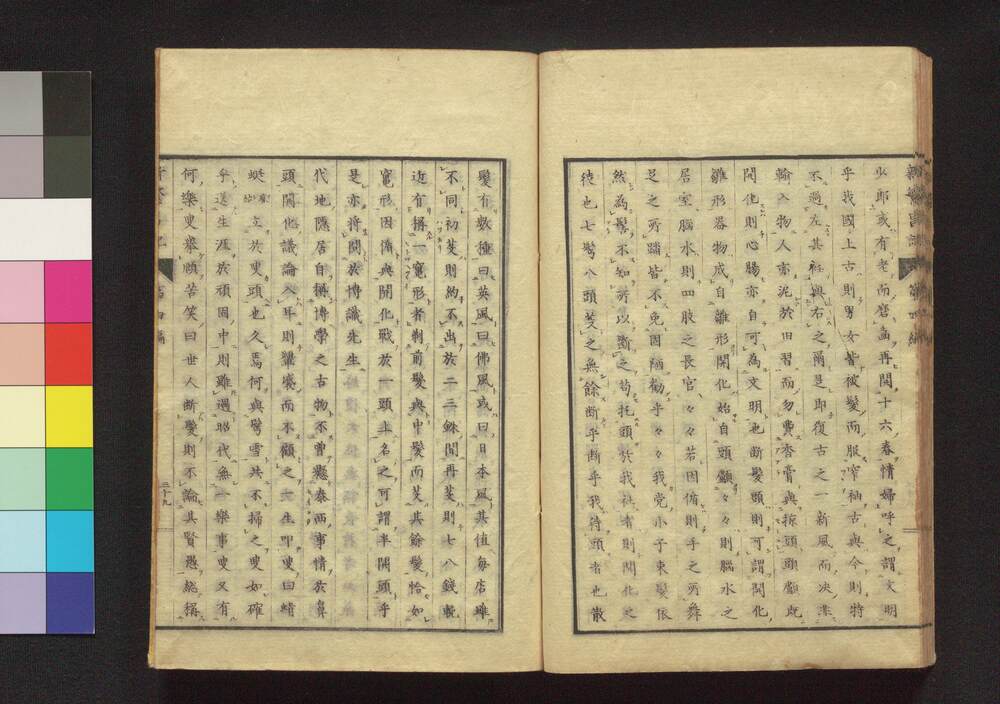 少郎或有老而磨齒再開十六春情婦呼之謂文明
乎我國上古則男女皆被髮而服窄袖古與今則特
不過左其衽與右之爾是即復古之一新風而決業
輸入物人索泥於旧習而勿費香膏與掠頭頭顱既
開化則心腸亦自可為文明也断髮頭則可謂開化
雛形器物成自雛形開化始自頭顱々々則腦水之
居室腦水則四肢之長官々々若因循則手之所舞
足之所踊皆不免因陋勧乎々々我党小子束髮依
然為髻不知所以断之苟托頭於我社者則開化之
待也七髻八頭芟之無餘断乎断乎我待頭者也散
髮有數種曰英風曰佛風或曰日本風其值每店雖
不同初芟則約不出於二三銖間再芟則七八錢輓
近有稱一寬形者剃前髮與中髮而芟其餘髮恰如
寬形因循與開化戰於一頭上名之可謂半開頭乎
是亦將聞於博識先生
代地隱居自稱博學之古物不曾懸泰西事情於鼻
頭開化議論入耳則顰蹙而不顧之一生叩叟曰蜻
蜓立於叟頭也久焉何與鬢雪共不掃之叟如確
乎送生涯於頑固中則雖遇昭代無一樂事叟又有
何樂叟擧頭苦笑曰世人断髮則不論其賢愚總稱
三十九